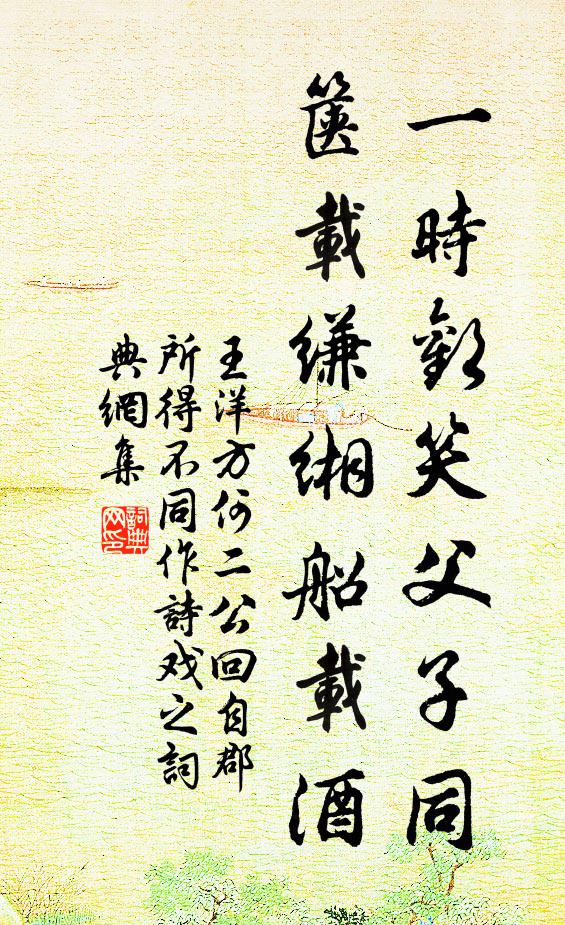 一時歡笑父子同
篋載縑緗船載酒
王洋方何二公回自郡
所得不同作詩戏之詞
典網集
詞典网印